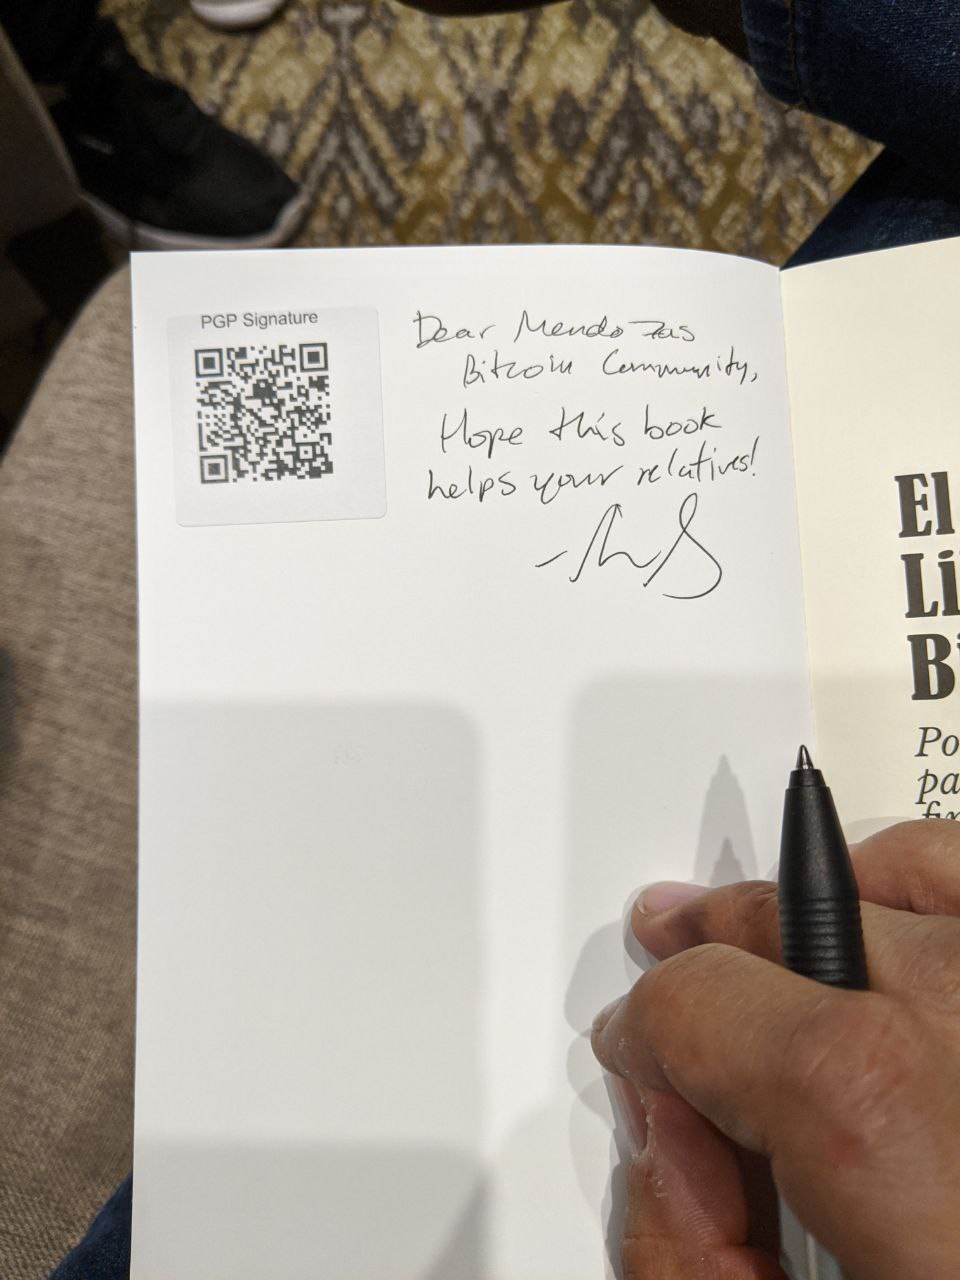 PGP Signature
Dear Mendozas
Bitcoin Community,
Hope this book
helps your relatives!
El
Li
Bi
Po
pa